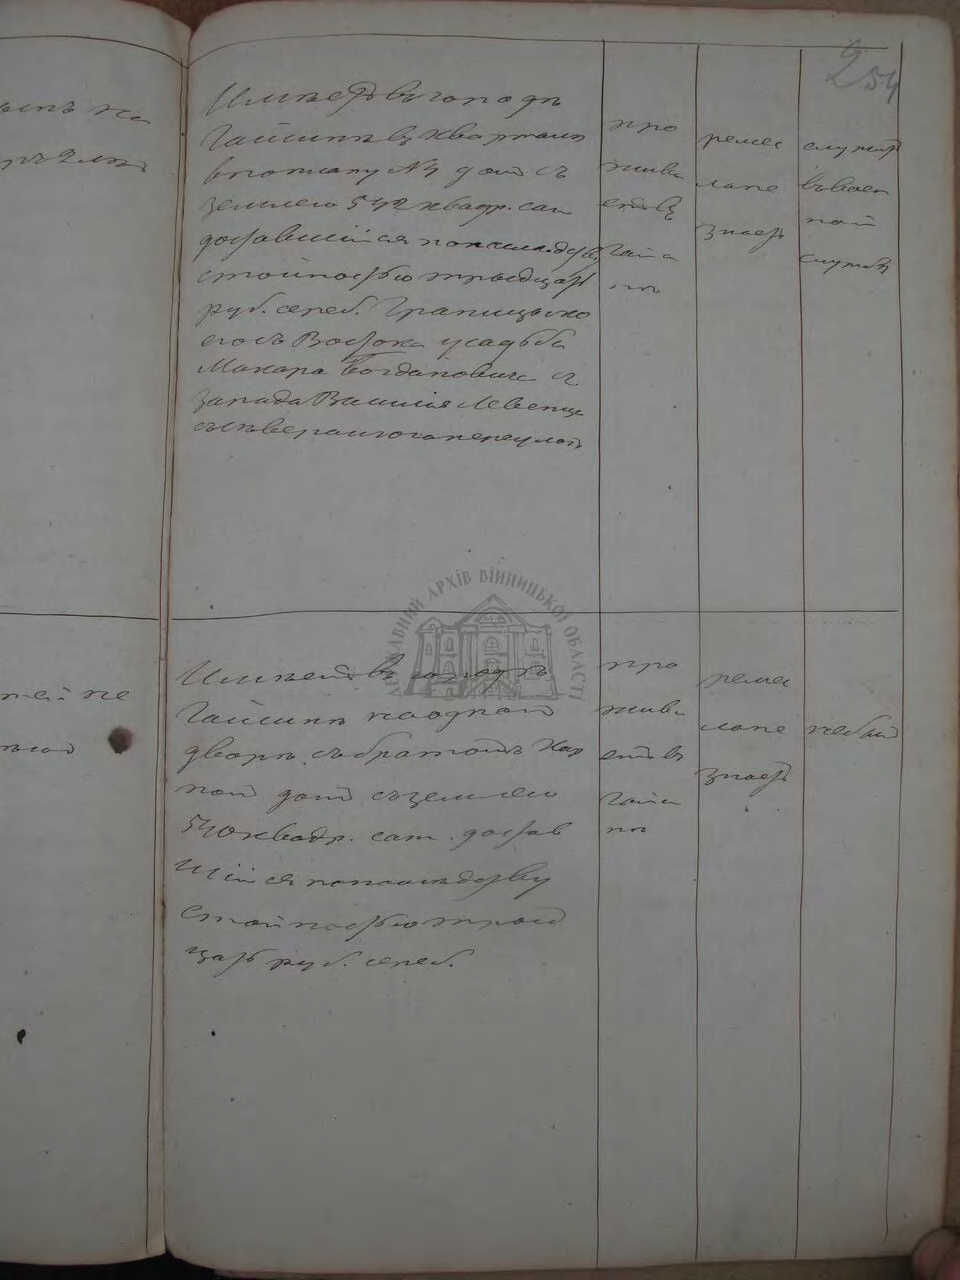 254
Имѣетъ въ городѣ
Гайсинѣ въ кварталѣ
№ 4 домъ съ
землею 542 квадр. саж
доставшійся по наслѣдству
стоимостью тридцать
руб. сереб. Граничь
его съ Востока усадьба
Макара Богдановича съ
запада Василія Левенца
съ сѣвера переулокъ
про
жива
етъ въ
Гайси
нѣ
ремес
ла не
знаетъ
служитъ
въ воен
ной
службѣ
Имѣетъ въ городѣ
Гайсинѣ на одномъ
дворѣ съ братомъ Кар
домъ съ землею
540 квадр. саж. достав
шійся по наслѣдству
стоимостью трид
цать руб. сереб.
про
жива
етъ въ
Гайси
нѣ
ремес
ла не
знаетъ
не былъ
ДЕРЖАВНИЙ АРХІВ ВІННИЦЬКОЇ ОБЛАСТІ